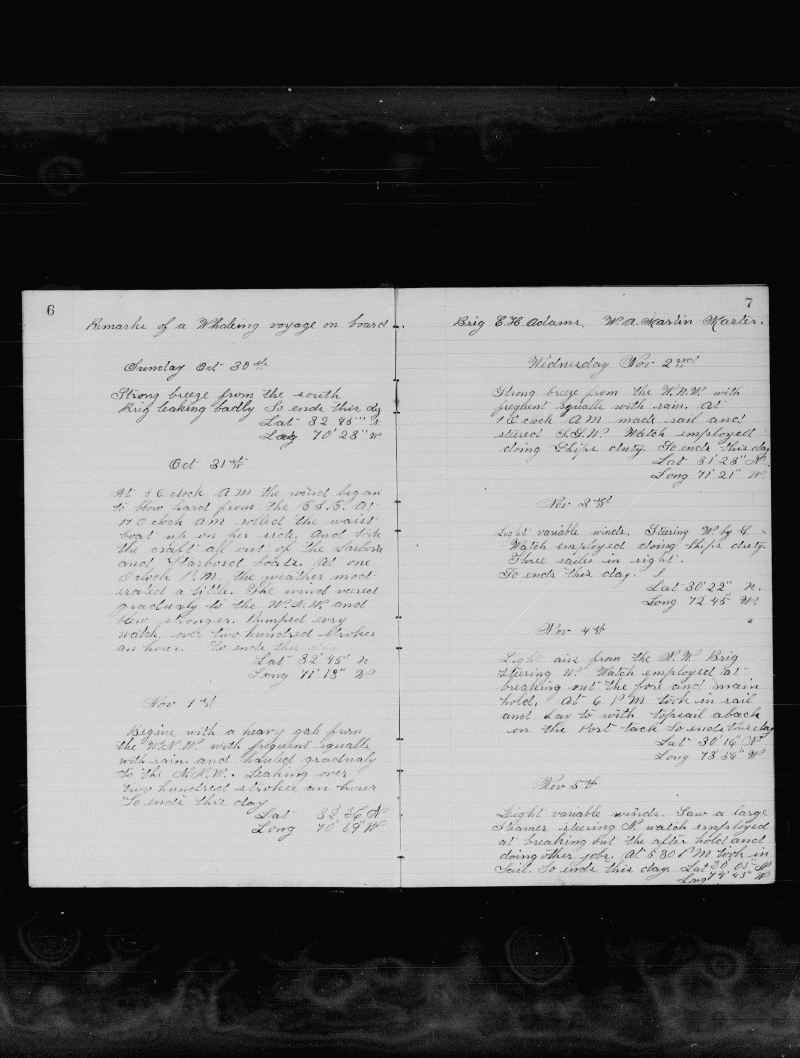 6
Remarks of a Whaleing voyage on board
Sunday Oct 30th
Strong breeze from the south
Brig leaking badly So ends this dy
Lat 32 45"
Long 70' 28" W
Oct 31st
At 4 O clock A M the wind began
to blow hard from the E.S.E. At
O clock AM rolled the waist
boat up on her side. And took
the craft all out of the Larbord
and Starbord boats. At one
O clock P.M. the weather mod-
erated a little. The wind veered
gradualy to the W.S.W. and
blew stronger. Pumped evry
watch over two hundred strokes
an hour. So ends this day
Lat 32' 45" N
Long 71' 18" W
Nov 1st
Begins with a heavy gale from
the W.N.W. with frequent squalls
with rain and hauled gradualy
to the N.N.W. Leaking over
two hundred strokes an hour
So ends this day
Lat 32, 36" N
Long 70' 59" W
7
Brig E.H. Adams. W.A. Martin Master.
Wednesday Nov 2nd
Strong breeze from the W.N.W. with
frequent squalls with rain. At
O clock A M made sail and
stered S.S.W. Watch employed
doing Ships duty. So ends this day
Lat 31' 23" N.
Long 71' 21" W.
Nov 3rd
Light variable winds. Steering W. by S.
Watch employed doing ships duty.
Three sailes in sight.
So ends this day.
Lat 30' 22" N.
Long 72' 45" W.
Nov 4th
Light airs from the N.W. Brig
steering W. Watch employed at
breaking out the fore and main
hold. At 6 P M took in sail
and Lay to with topsail aback
on the Port tack So ends this day
Lat 30' 16" N
Long 73' 56" W
Nov 5th
Light variable winds. Saw a large
Steamer steering N. watch employed
at breaking out the after hold and
doing other jobs. At 5 30 P M took in
Sail. So ends this day. Lat 30' 05" N
Long 74' 45" W